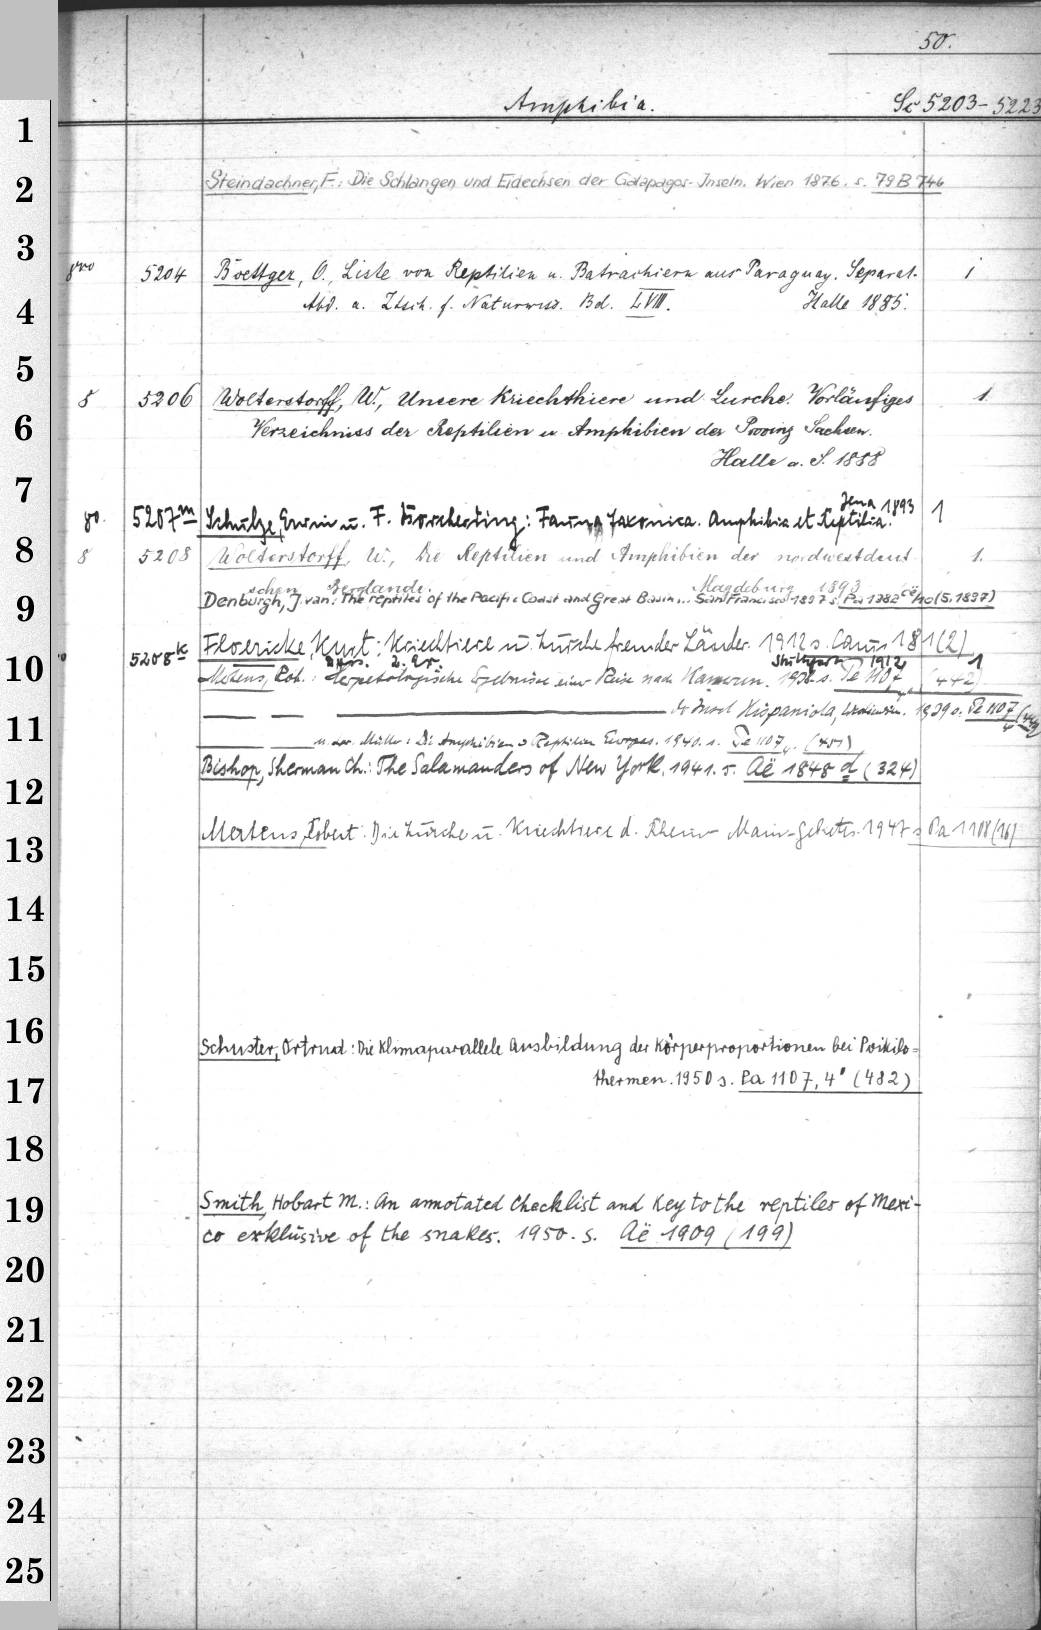 50.
Amphibia. Sc 5203-5223
1
2
Steindachner, F.: Die Schlangen und Eidechsen der Galapagos-Inseln. Wien 1876. s. 79 B 746
3
8vo 5204 Boettger, O., Liste von Reptilien u. Batrachiern aus Paraguay. Separat- 1
4
Abd. a. Ztsch. f. Naturwiss. Bd. LVIII. Halle 1885.
5
8 5206 Wolterstorff, W., Unsere Kriechthiere und Lurche. Vorläufiges 1
6
Verzeichniss der Reptilien u. Amphibien der Provinz Sachsen.
Halle a. S. 1888
7
Jena 1893
80. 5207m Schulze, Erwin u. F. Borcherding: Fauna Saxonica. Amphibia et Reptilia. 1
8
8 5208 Wolterstorff, W., Die Reptilien und Amphibien der nordwestdeut- 1.
schen Berglande. Magdeburg 1893
9
Denburgh, J. van: The reptiles of the Pacific Coast and Great Basin... San Francisco 1897 s. Pa 1282 (5.1897)
5208k Floericke, Kurt: Kriechtiere u. Lurche fremder Länder. 1912 s. Caum 181(2)
Stuttgart 1912 1
10
Mertens, Rob.: Herpetologische Ergebnisse einer Reise nach Kamerun. 1938 s. Pe 1107 (442)
11
d. Insel Hispaniola, Westindien. 1939 s. Pe 1107
u. Lor. Müller: Die Amphibien u. Reptilien Europas. 1940. s. Pe 1107, 4 (451)
Bishop, Sherman Ch.: The Salamanders of New York. 1941. s. Aë 1848 d (324)
12
Mertens, Robert: Die Lurche u. Kriechtiere d. Rhein-Main-Gebietes. 1947 s. Pa 1108 (16)
13
14
15
16
Schuster, Ortrud: Die Klimaparallele Ausbildung der Körperproportionen bei Poikilo=
thermen. 1950 s. Pa 1107, 4° (482)
17
18
19
Smith, Hobart M.: An annotated Checklist and Key to the reptiles of Mexi-
co exklusive of the snakes. 1950. s. Aë 1909 (199)
20
21
22
23
24
25